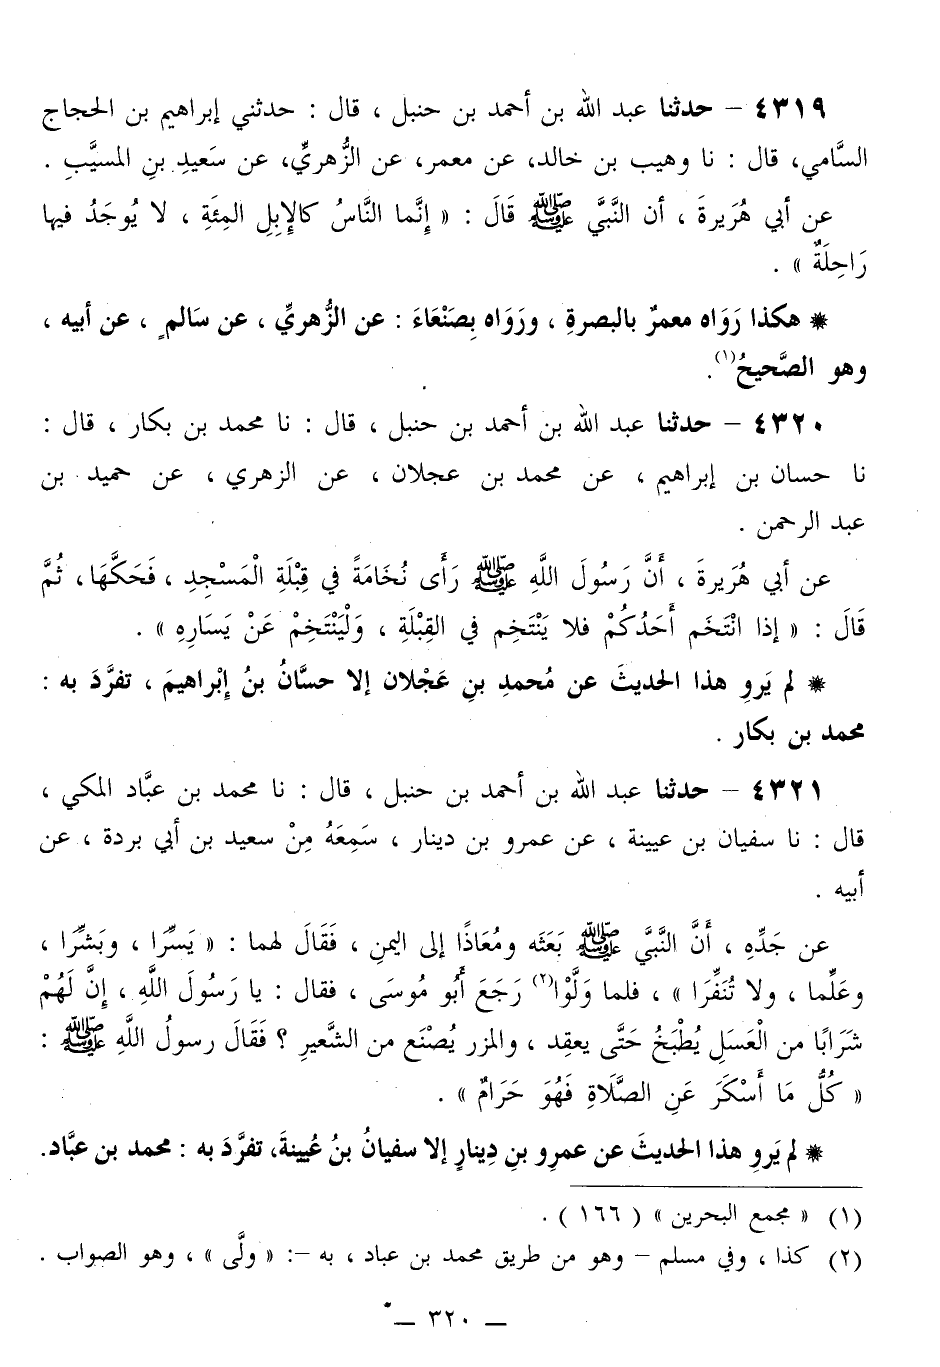 ٤٣١٩ – حدثنا عبد الله بن أحمد بن حنبل ، قال : حدثني إبراهيم بن الحجاج
السَّامي، قال : نا وهيب بن خالد، عن معمر، عن الزُّهريِّ، عن سَعيدِ بنِ المسيَّبِ .
عن أبي هُرَيرةَ ، أن النَّبيَّ ﷺ قَالَ : « إِنَّما النَّاسُ كالإِبِلِ المِئَةِ ، لا يُوجَدُ فيها
رَاحِلَةٌ » .
* هكذا رَوَاه معمرٌ بالبصرةِ ، ورَوَاه بِصَنْعَاءَ : عن الزُّهريِّ ، عن سَالمٍ ، عن أبيه ،
وهو الصَّحيحُ(١).
٤٣٢٠ – حدثنا عبد الله بن أحمد بن حنبل ، قال : نا محمد بن بكار ، قال :
نا حسان بن إبراهيم ، عن محمد بن عجلان ، عن الزهري ، عن حميد بن
عبد الرحمن .
عن أبي هُرَيرةَ ، أَنَّ رَسُولَ اللَّهِ ﷺ رَأَى نُخَامَةً في قِبْلَةِ الْمَسْجِدِ ، فَحَكَّهَا، ثُمَّ
قَالَ : « إذا انْتَخَم أَحَدُكُمْ فلا يَنْتَخِم في القِبْلَةِ ، وَلْيَنْتَخِمْ عَنْ يَسَارِهِ » .
* لم يَروِ هذا الحديثَ عن مُحمدِ بنِ عَجْلان إلا حسَّانُ بنُ إبْراهيمَ ، تفرَّدَ به :
محمد بن بكار .
٤٣٢١ – حدثنا عبد الله بن أحمد بن حنبل ، قال : نا محمد بن عبَّاد المكي ،
قال : نا سفيان بن عيينة ، عن عمرو بن دينار ، سَمِعَهُ مِنْ سعيد بن أبي بردة ، عن
أبيه .
عن جَدِّهِ ، أَنَّ النَّبيَّ ﷺ بَعَثَه ومُعَاذًا إلى اليمنِ ، فَقَالَ لهما : « يَسِّرَا ، وبَشِّرَا ،
وعَلِّما ، ولا تُنَفِّرَا » ، فلما وَلَّوْا(٢) رَجَعَ أَبُو مُوسَى ، فقال : يا رَسُولَ اللَّهِ ، إِنَّ لَهُمْ
شَرَابًا من الْعَسَلِ يُطْبَخُ حَتَّى يعقِد ، والمزر يُصْنَع من الشَّعيرِ ؟ فَقَالَ رسولُ اللَّهِ ﷺ :
« كُلُّ مَا أَسْكَرَ عَنِ الصَّلَاةِ فَهُوَ حَرَامٌ » .
* لم يَروِ هذا الحديثَ عن عمرِو بنِ دِينارٍ إلا سفيانُ بنُ عُيينةَ، تفرَّدَ به : محمد بن عبَّاد.
(١) « مجمع البحرين » ( ١٦٦ ) .
(٢) كذا ، وفي مسلم – وهو من طريق محمد بن عباد ، به –: « ولَّى » ، وهو الصواب .
— ٣٢٠ —